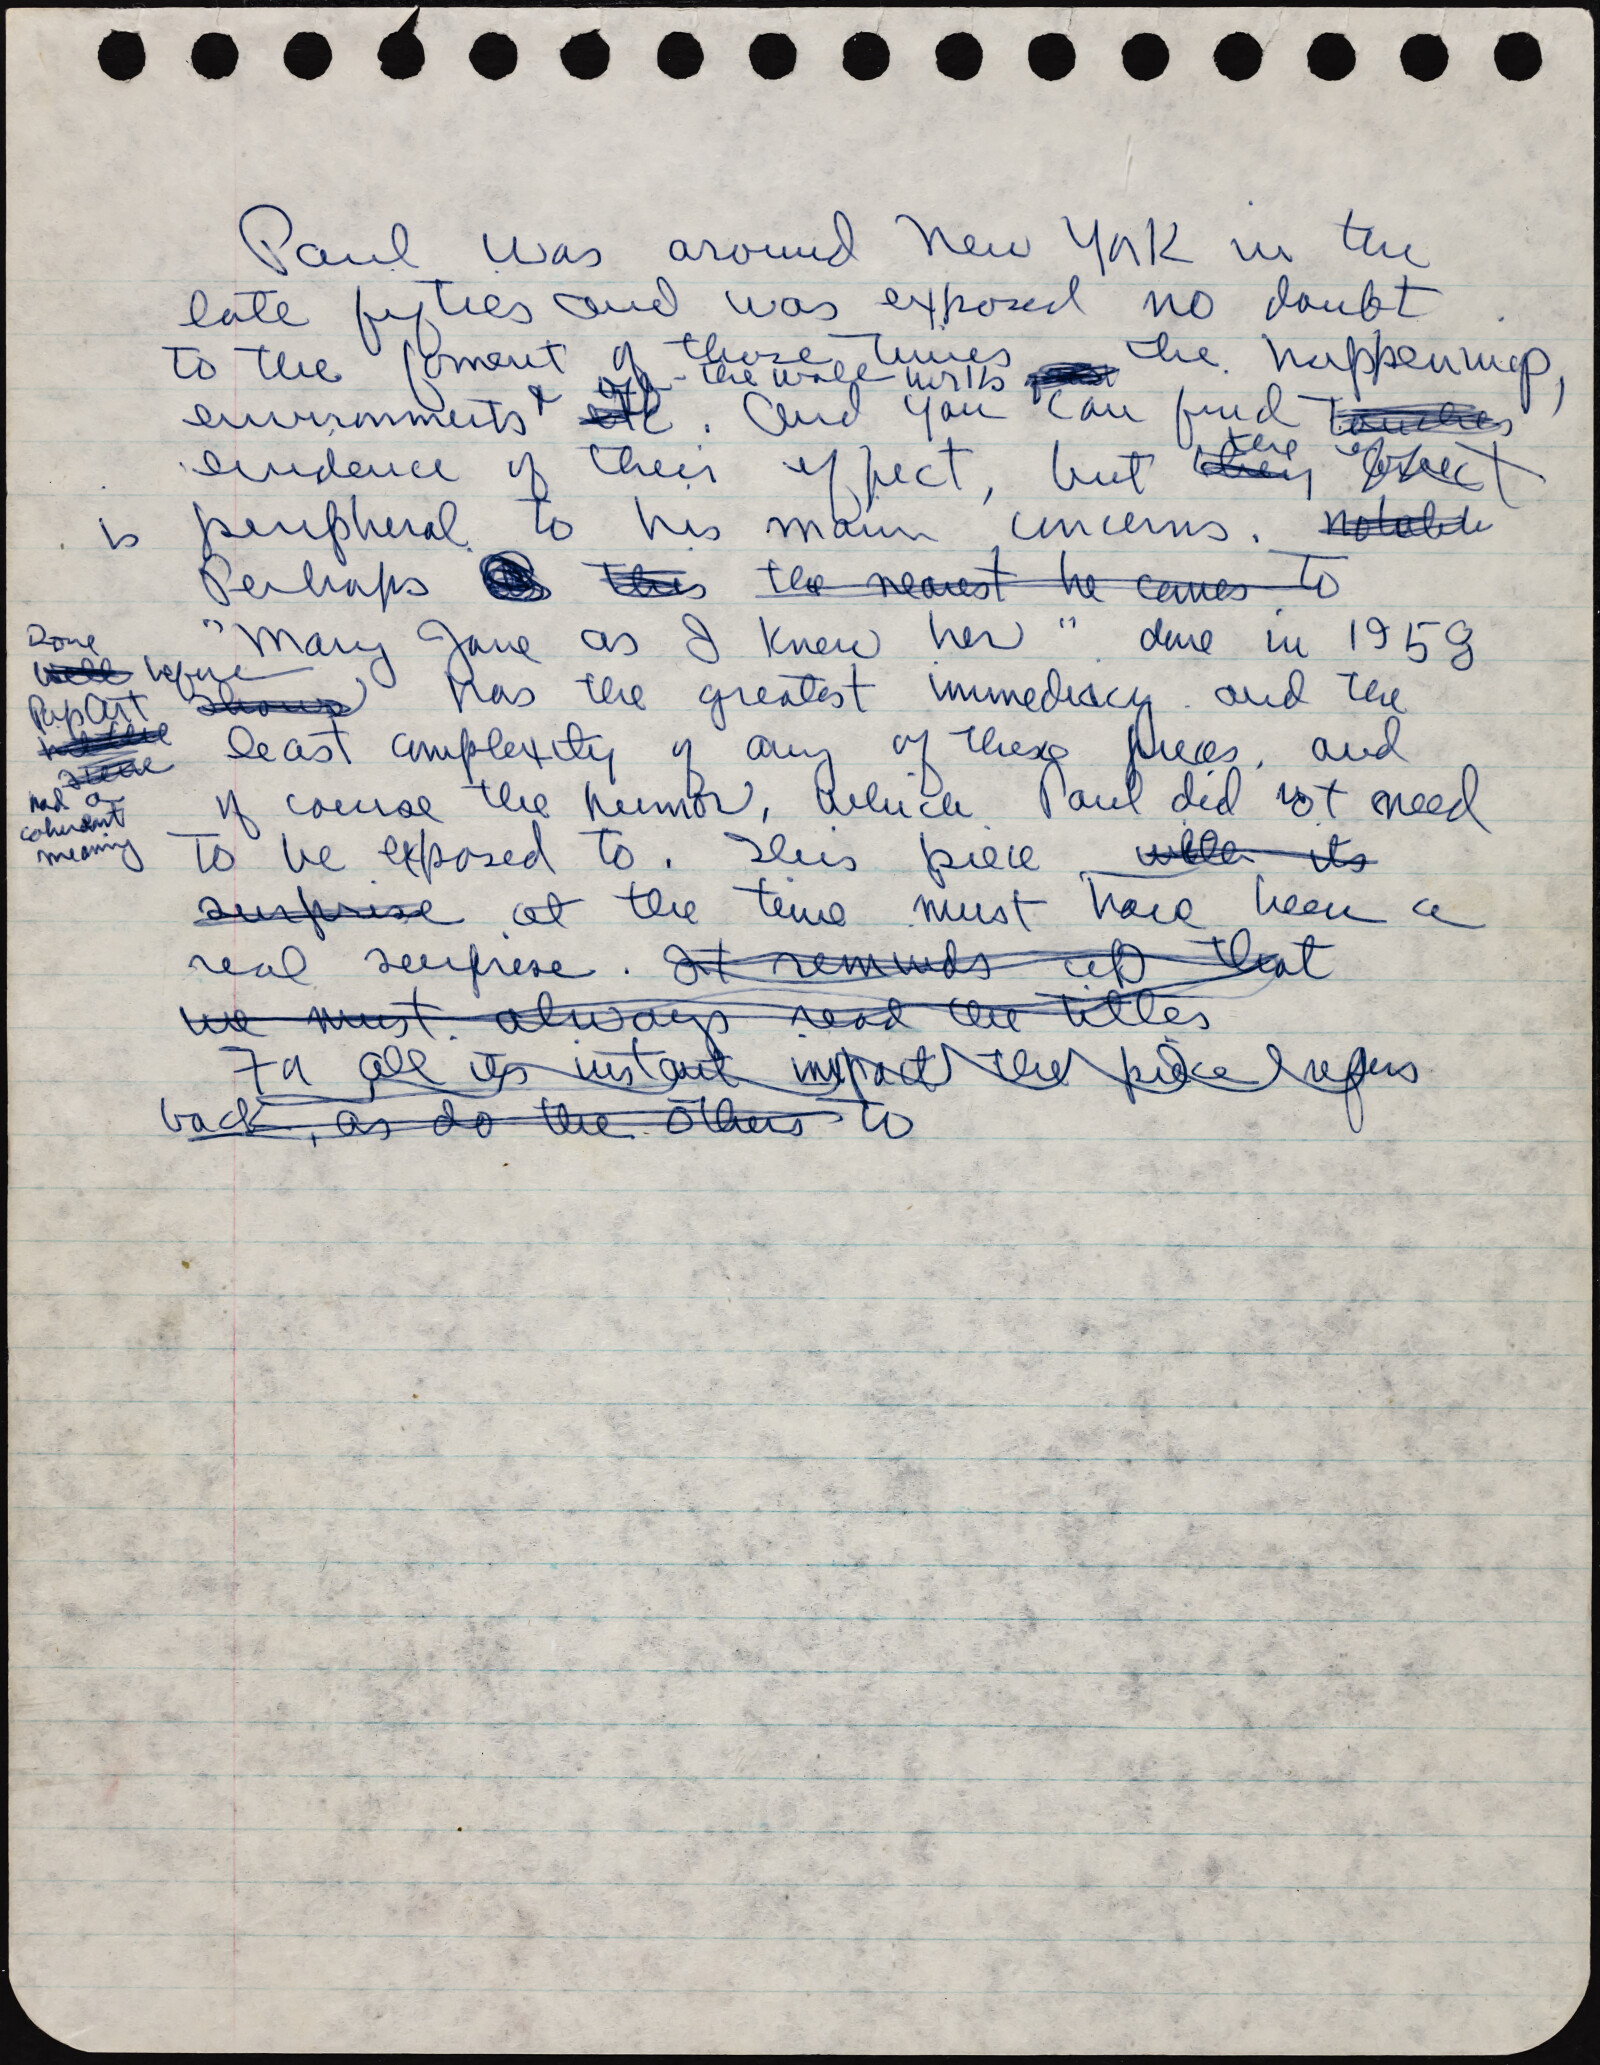 Paul was around New York in the
late fifties and was exposed no doubt
to the foment of those times the happenings,
the wall works
environments & etc. And you can find touches
the effect
evidence of their effect, but they effect
is peripheral to his main concerns. notable
Perhaps this the nearest he comes to
"Mary Jane as I knew her" done in 1959
Done
well before
Pop Art shows has the greatest immediacy and the
least complexity of any of these pieces, and
had a
coherent
meaning
of course the humor, which Paul did not need
to be exposed to. This piece with its
surprise at the time must have been a
real surprise. It reminds us that
we must always read the titles
For all its instant impact the piece refers
back, as do the others to